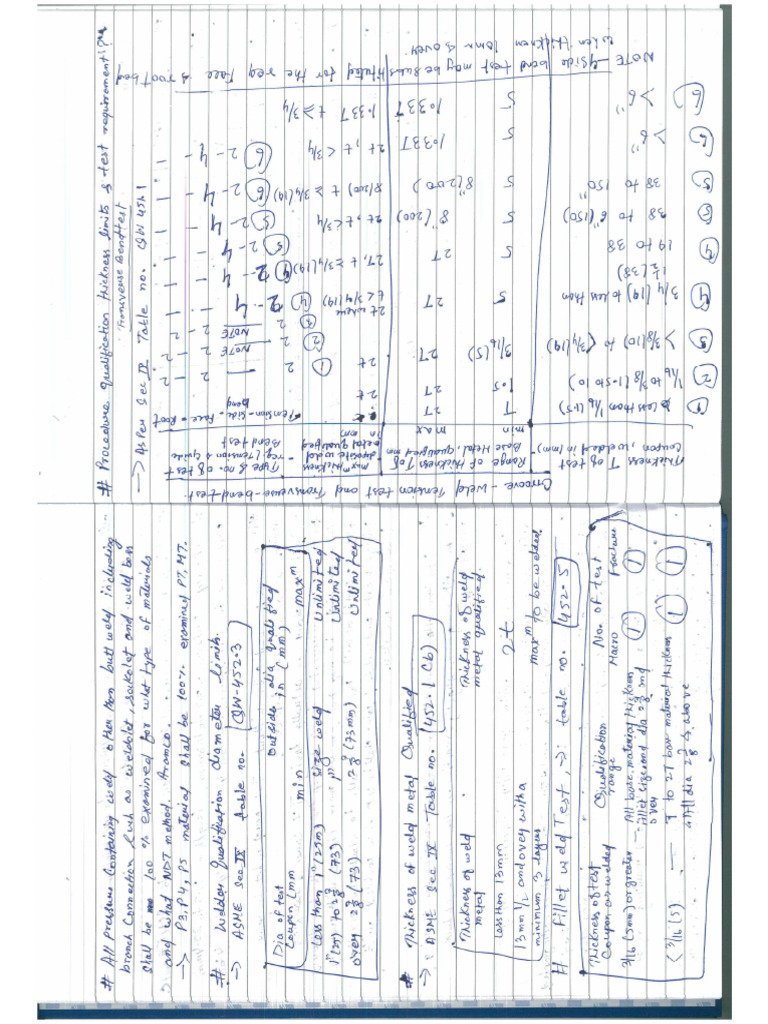 # Procedure qualification thickness limits & test requirement?
Transverse Bend test
→ As Per Sec IX Table no. QW 451.1
Groove - weld Tension test and Transverse-bend-test.
Thickness T of test Coupon, welded in (mm)
Range of thickness T of Base Metal, qualified mm
min max
max thickness deposite weld metal qualified in mm
Type & no of test req. (Tension & Guide Bend test
Tension - side - Face - Root
bend
① Less than 1/16 (1.5) T 2T
② 1/16 to 3/8 (1.5 to 10) 1.5 2T 2t
③ > 3/8 (10) to < (3/4 (19) 3/16 (5) 2T 2t
④ 3/4 (19) to less than 1 1/2 (38) 5 2T 2t when t < 3/4 (19)
④ 19 to 38 5 2T 2T, t ≥ 3/4 (19)
⑤ 38 to 6" (150) 5 8" (200) 2t, t < 3/4
⑤ 38 to 150" 5 8" (200) 8 (200) t ≥ 3/4 (19)
⑥ > 6" 5 1.33T 2t, t < 3/4
⑥ > 6" 5 1.33T 1.33T t ≥ 3/4
NOTE → 4 side bend test may be substituted for the req face & root bend
when thickness 10mm & over
# All pressure containing weld other than butt weld including
branch connection such as weldolet, sokolet and weld boss
shall be 100 % examined for what type of materials
→ and what NDT method. Aramco.
→ P3, P4, P5 material shall be 100% examined PT, MT.
# : Welder qualification diameter limits
→ ASME Sec IX table no. QW-452.3
Dia of test Coupon (mm
outside dia qualified in (mm)
min max m
Less than 1" (25m) size weld Unlimited
1" (25) to 2 7/8 (73) 1" Unlimited
over 2 7/8 (73) 2 7/8 (73mm) Unlimited
# Thickness of weld metal Qualified
→ ASME Sec IX Table no. 452.1 (b)
Thickness of weld metal
Thickness of weld metal qualified
Less than 13mm 2t
13mm 1/2 and over with a minimum 3 layers
max m to be welded
# Fillet weld Test, → table no. 452.5
Thickness of test Coupon as welded
Qualification range
No. of test
Macro Fracture
3/16 (5mm) or greater — All base material thickness fillet size and dia 2 7/8 and over ① ①
< 3/16 (5) — base material thickness & All dia 2 7/8 & above ① ①